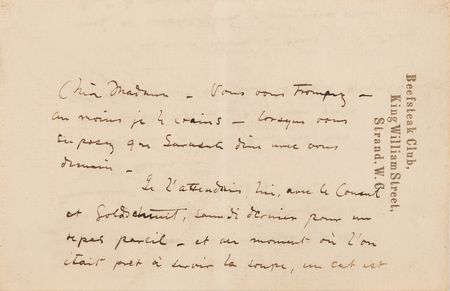 Beefsteak Club,
King William Street,
Strand. W. C.
Chère Madame – Vous vous trompez –
au moins je le crains – lorsque vous
supposez que Sarasate dîne avec vous
demain –
Je l'attendais, lui, avec le Consul
et Goldschmidt, samedi dernier pour un
repas pareil – et au moment où l'on
était prêt à servir la soupe, un
est